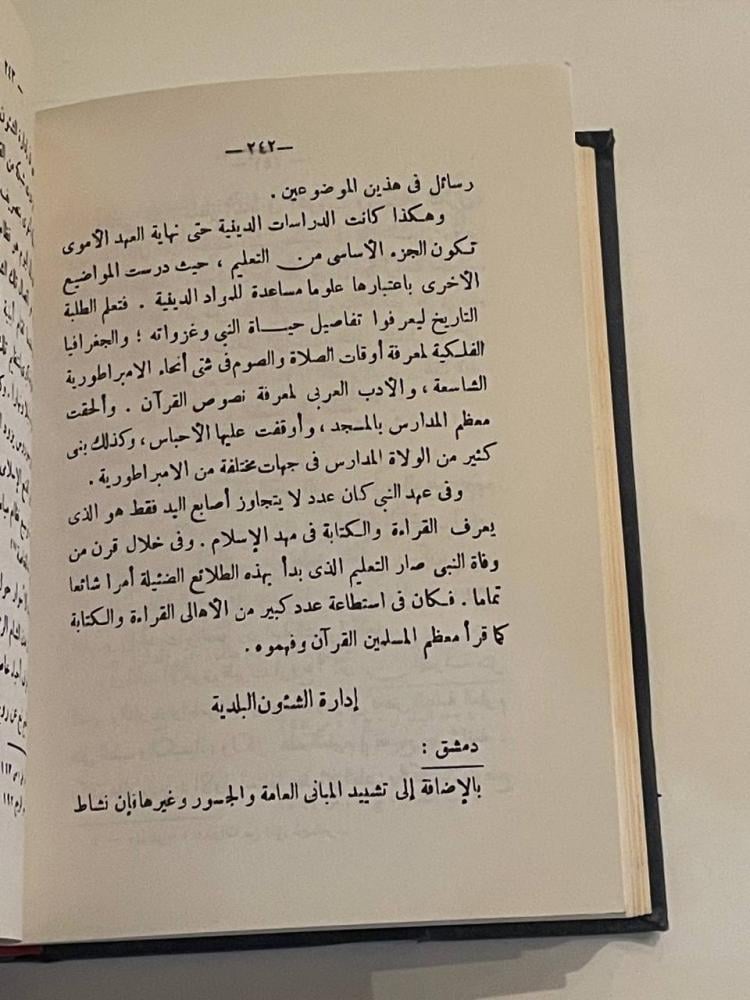 —٢٤٢—
رسائل فى هذين الموضوعين .
وهكذا كانت الدراسات الدينية حتى نهاية العهد الأموى
تكون الجزء الأساسى من التعليم ، حيث درست المواضيع
الأخرى باعتبارها علوما مساعدة للمواد الدينية . فتعلم الطلبة
التاريخ ليعرفوا تفاصيل حياة النبى وغزواته ؛ والجغرافيا
الفلكية لمعرفة أوقات الصلاة والصوم فى شتى أنحاء الامبراطورية
الشاسعة ، والأدب العربى لمعرفة نصوص القرآن . وألحقت
معظم المدارس بالمسجد ، وأوقفت عليها الأحباس ، وكذلك بنى
كثير من الولاة المدارس فى جهات مختلفة من الامبراطورية .
وفى عهد النبى كان عدد لا يتجاوز أصابع اليد فقط هو الذى
يعرف القراءة والكتابة فى مهد الإسلام . وفى خلال قرن من
وفاة النبى صار التعليم الذى بدأ بهذه الطلائع الضئيلة أمرا شائعا
تماما . فكان فى استطاعة عدد كبير من الأهالى القراءة والكتابة
كما قرأ معظم المسلمين القرآن وفهموه .
إدارة الشئون البلدية
دمشق :
بالإضافة إلى تشييد المبانى العامة والجسور وغيرها فإن نشاط